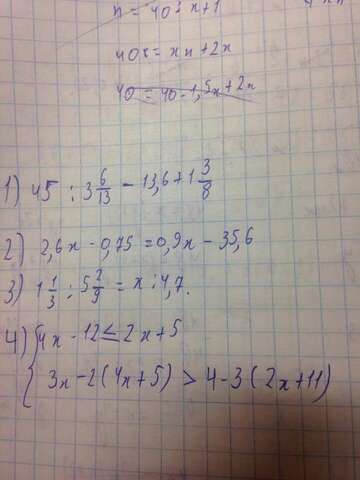 n = 40 : x+1
40 = xn + 2x
40 = 40 - 1,5x + 2x
1) 45 : 3 6/13 - 13,6 + 1 3/8
2) 2,6x - 0,75 = 0,9x - 35,6
3) 1 1/3 : 5 2/9 = x : 4,7.
4) { 4x - 12 ≤ 2x + 5
3x - 2(4x+5) > 4 - 3(2x+11)